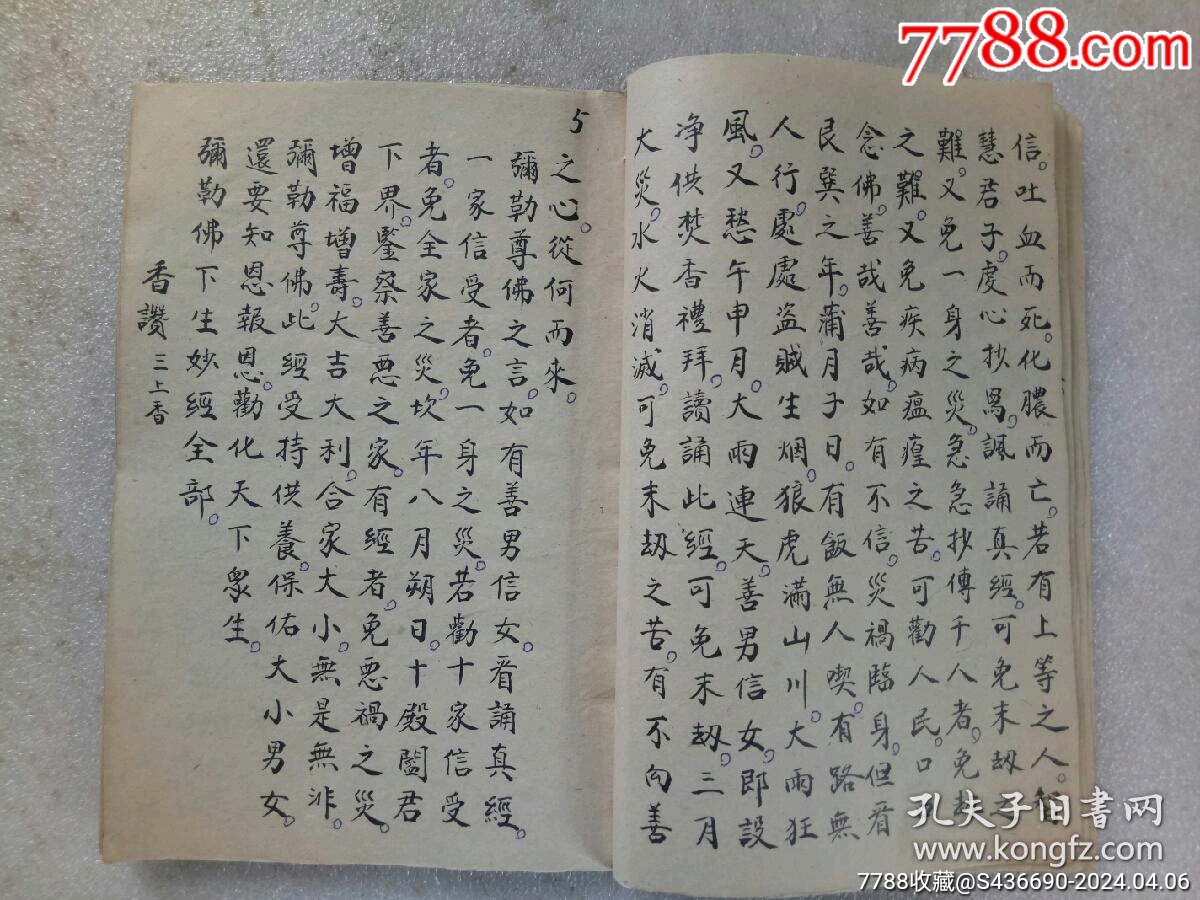 7788.com
信。吐血而死。化膿而亡。若有上等之人。智
慧君子。虔心抄寫。諷誦真經。可免末劫之
難。又免一身之災。急急抄傳千人者。免
之難。又免疾病瘟㾮之苦。可勸人民。口
念佛。善哉善哉。如有不信。災禍臨身。但看
艮巽之年。蒲月子日。有飯無人喫。有路無
人行。處處盜賊生烟。狼虎滿山川。大雨狂
風。又愁午申月。大雨連天。善男信女。即設
净供焚香禮拜。讀誦此經。可免末劫。三月
大災。水火消滅。可免末劫之苦。有不向善
5
之心。從何而來。
彌勒尊佛之言。如有善男信女。看誦真經。
一家信受者。免一身之災。若勸十家信受
者。免全家之災。坎年八月朔日。十殿閻君
下界。鑒察善惡之家。有經者。免惡禍之災。
增福增壽。大吉大利。合家大小。無是無非。
彌勒尊佛。此經受持供養。保佑大小男女。
還要知恩報恩。勸化天下眾生。
彌勒佛下生妙經全部。
香讚 三上香
孔夫子旧书网
www.kongfz.com
7788收藏@S436690-2024.04.06